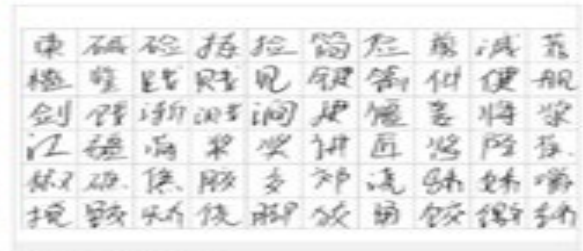 柬碱硷拣捡简俭剪减荐
槛鉴践贱见键箭件健舰
剑饯渐溅涧建僵姜将浆
江疆蒋桨奖讲匠酱降蕉
椒礁焦胶交郊浇骄娇嚼
搅铰矫侥脚狡角饺缴绞